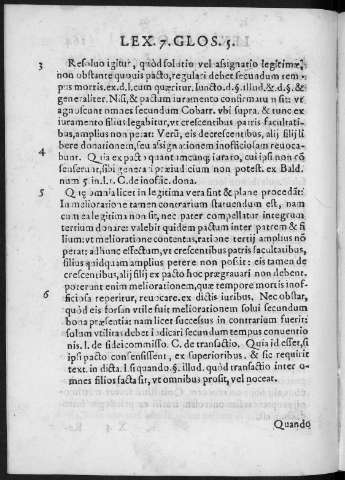 LEX. 7. GLOS. 5.
3 Resoluo igitur, quòd solutio vel assignatio legitimæ,
non obstante quouis pacto, regulari debet secundum tem-
pus mortis. ex. d. l. cum quæritur. iuncto. d. §. illud. & d. §. &
generaliter. Nisi, & pactum iuramento confirmatū sit: vt
agnoscunt omnes secundum Cobarr. vbi supra. & tunc ex
iuramento filius legabitur, vt crescentibus patris facultati-
bus, amplius non petat: Verū, eis decrescentibus, alij filij li
bere donationem, seu assignationem inofficiosam reuoca-
4 bunt. Quia ex pacto quantumcunq; iurato, cui ipsi non cō
senserunt, sibi generari præiudicium non potest. ex Bald.
num 5. in. l. 1. C. de inoffic. dona.
5 Quæ omnia licet in legitima vera sint & plane procedāt:
In melioratione tamen contrarium statuendum est, nam
cum ea legitima non sit, nec pater compellatur integrum
tertium donare: valebit quidem pactum inter patrem & fi
lium: vt melioratione contentus, ratione tertij amplius nō
petat: ad hunc effectum, vt crescentibus patris facultatibus,
filius quidquam amplius petere non possit: eis tamen de
crescentibus, alij filij ex pacto hoc prægrauari non debent.
poterunt enim meliorationem, quæ tempore mortis inof-
6 ficiosa reperitur, reuocare. ex dictis iuribus. Nec obstat,
quòd eis forsan vtile fuit meliorationem solui secundum
bona præsentia: nam licet successus in contrarium fuerit:
solum vtilitas debet iudicari secundum tempus conuentio
nis. l. de fideicommisso. C. de transactio. Quia id esset, si
ipsi pacto consensissent, ex superioribus. & sic requirit
text. in dicta. l. si quando. §. illud. quòd transactio inter o-
mnes filios facta sit, vt omnibus prosit, vel noceat.
Quando